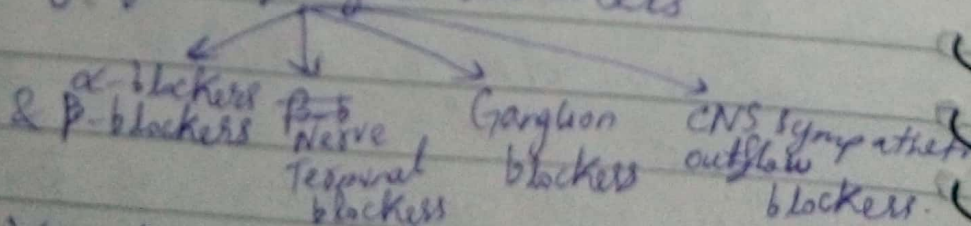 α-blockers
& β-blockers
Nerve
Terminal
blockers
Ganglion
blockers
CNS sympathet
outflow
blockers.